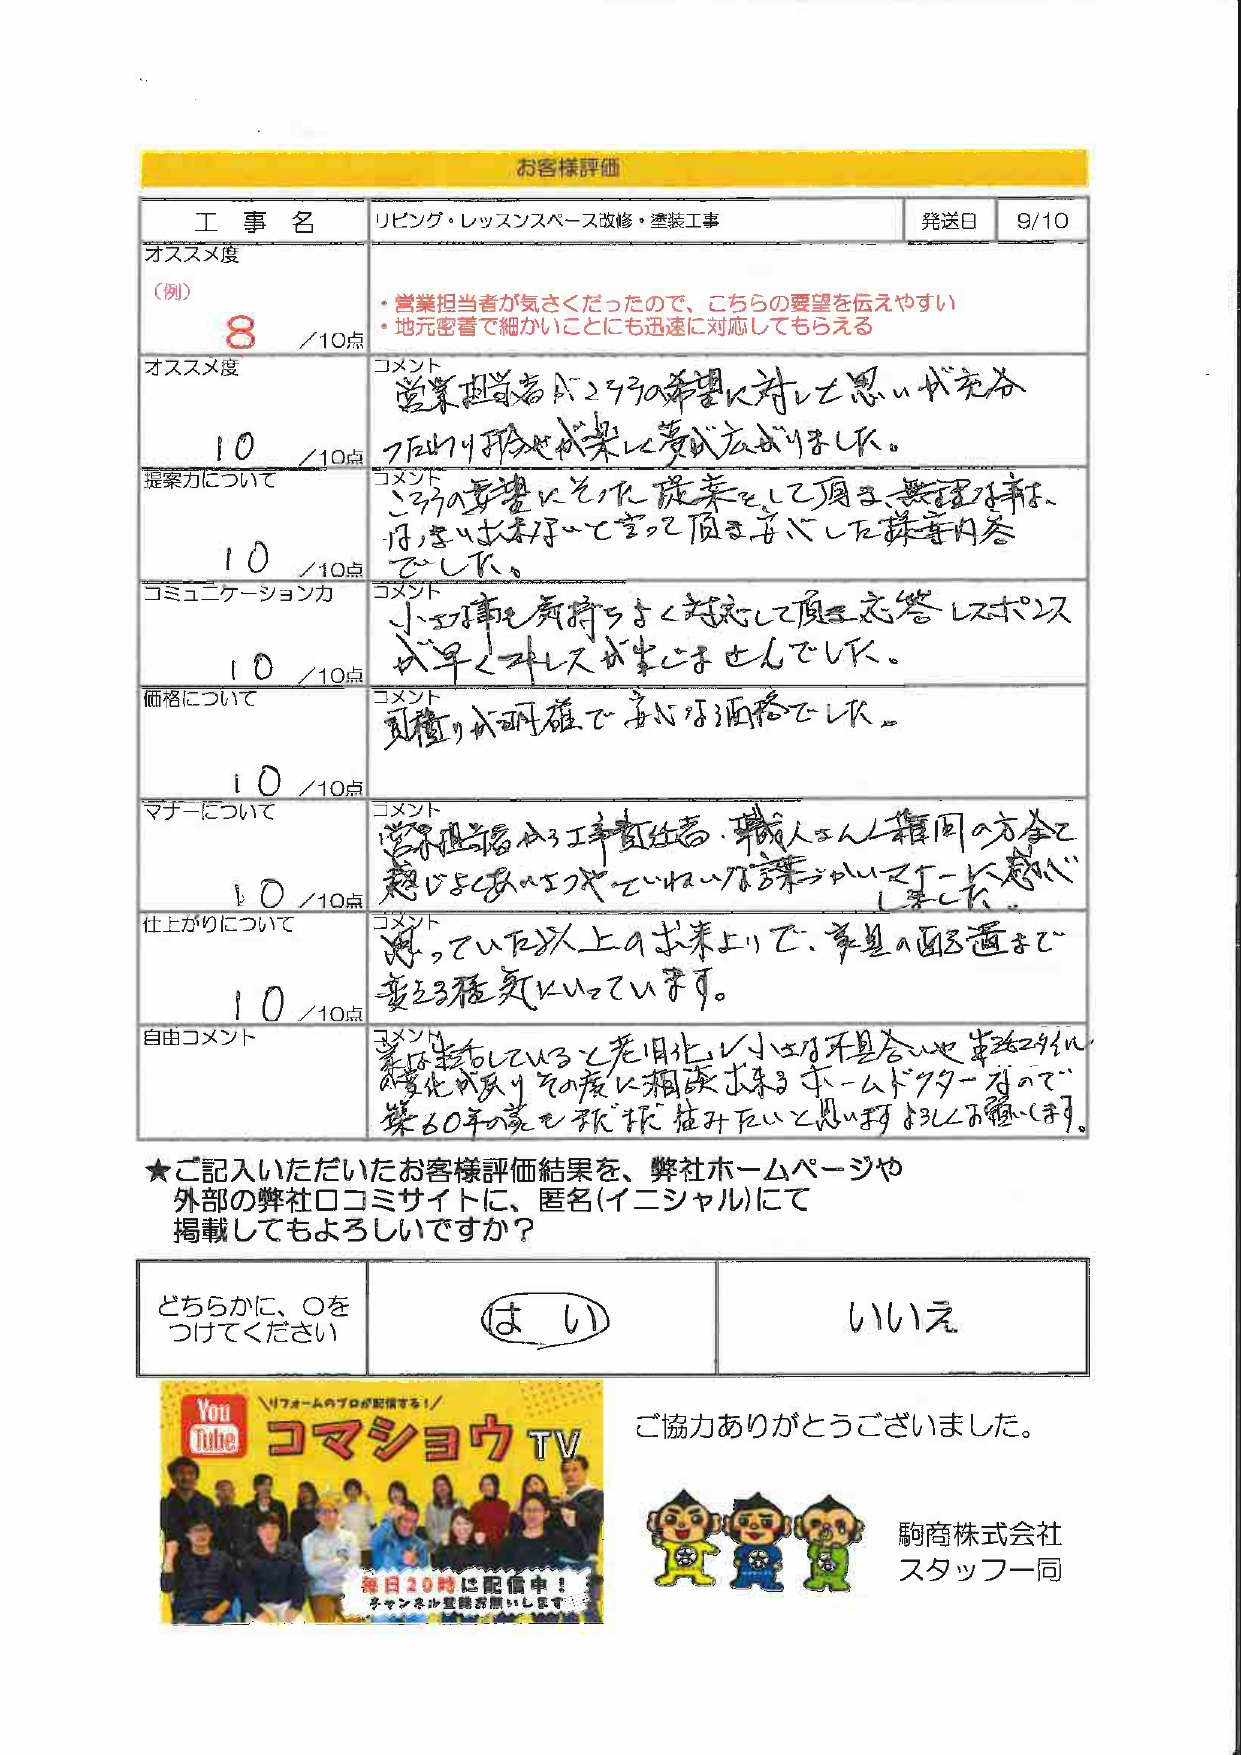 お客様評価
工 事 名 リビング・レッスンスペース改修・塗装工事 発送日 9/10
オススメ度
（例）
8 /10点
・営業担当者が気さくだったので、こちらの要望を伝えやすい
・地元密着で細かいことにも迅速に対応してもらえる
オススメ度
10 /10点
コメント
営業担当者がこちらの希望に対して思いが充分
つたわり打合せが楽しく夢が広がりました。
提案力について
10 /10点
コメント
こちらの要望にそった提案をして頂き、無理な事は、
はっきり出来ないと言って頂き安心した提案内容
でした。
コミュニケーション力
10 /10点
コメント
小さな事も気持ちよく対応して頂き応答レスポンス
が早くストレスが生じませんでした。
価格について
10 /10点
コメント
見積りが明確で安心な価格でした。
マナーについて
10 /10点
コメント
営業担当者から工事責任者・職人さん の方全て
感じよくあいさつやていねいな言葉づかいマナーに感心
しました。
仕上がりについて
10 /10点
コメント
思っていた以上の出来上りで、家具の配置まで
変える程気にいっています。
自由コメント
コメント
家は生活していると老旧化し小さな不具合いや生活スタイル
の変化が有りその度に相談出来るホームドクターなので
築60年の家もまだまだ住みたいと思いますよろしくお願いします。
★ご記入いただいたお客様評価結果を、弊社ホームページや
外部の弊社口コミサイトに、匿名(イニシャル)にて
掲載してもよろしいですか？
どちらかに、〇を
つけてください
はい
いいえ
You Tube
\リフォームのプロが配信する！/
コマショウTV
毎日20時に配信中！
チャンネル登録お願いします
ご協力ありがとうございました。
駒商株式会社
スタッフ一同